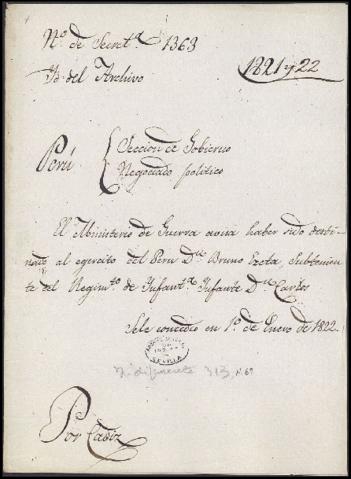 N.º de Secret.ª 1363
Yd. del Archivo
1821 y 22
Perú { Seccion de Gobierno
Negociado politico
El Ministerio de Guerra avisa haber sido desti-
nado al egercito del Peru D.n Bruno Ezeta, Subtenien-
te del Regim.to de Ynfant.a Ynfante D.n Carlos
Sele concedio en 1º de Enero de 1822.
SEVILLA
313, N. 69
Por Cadiz